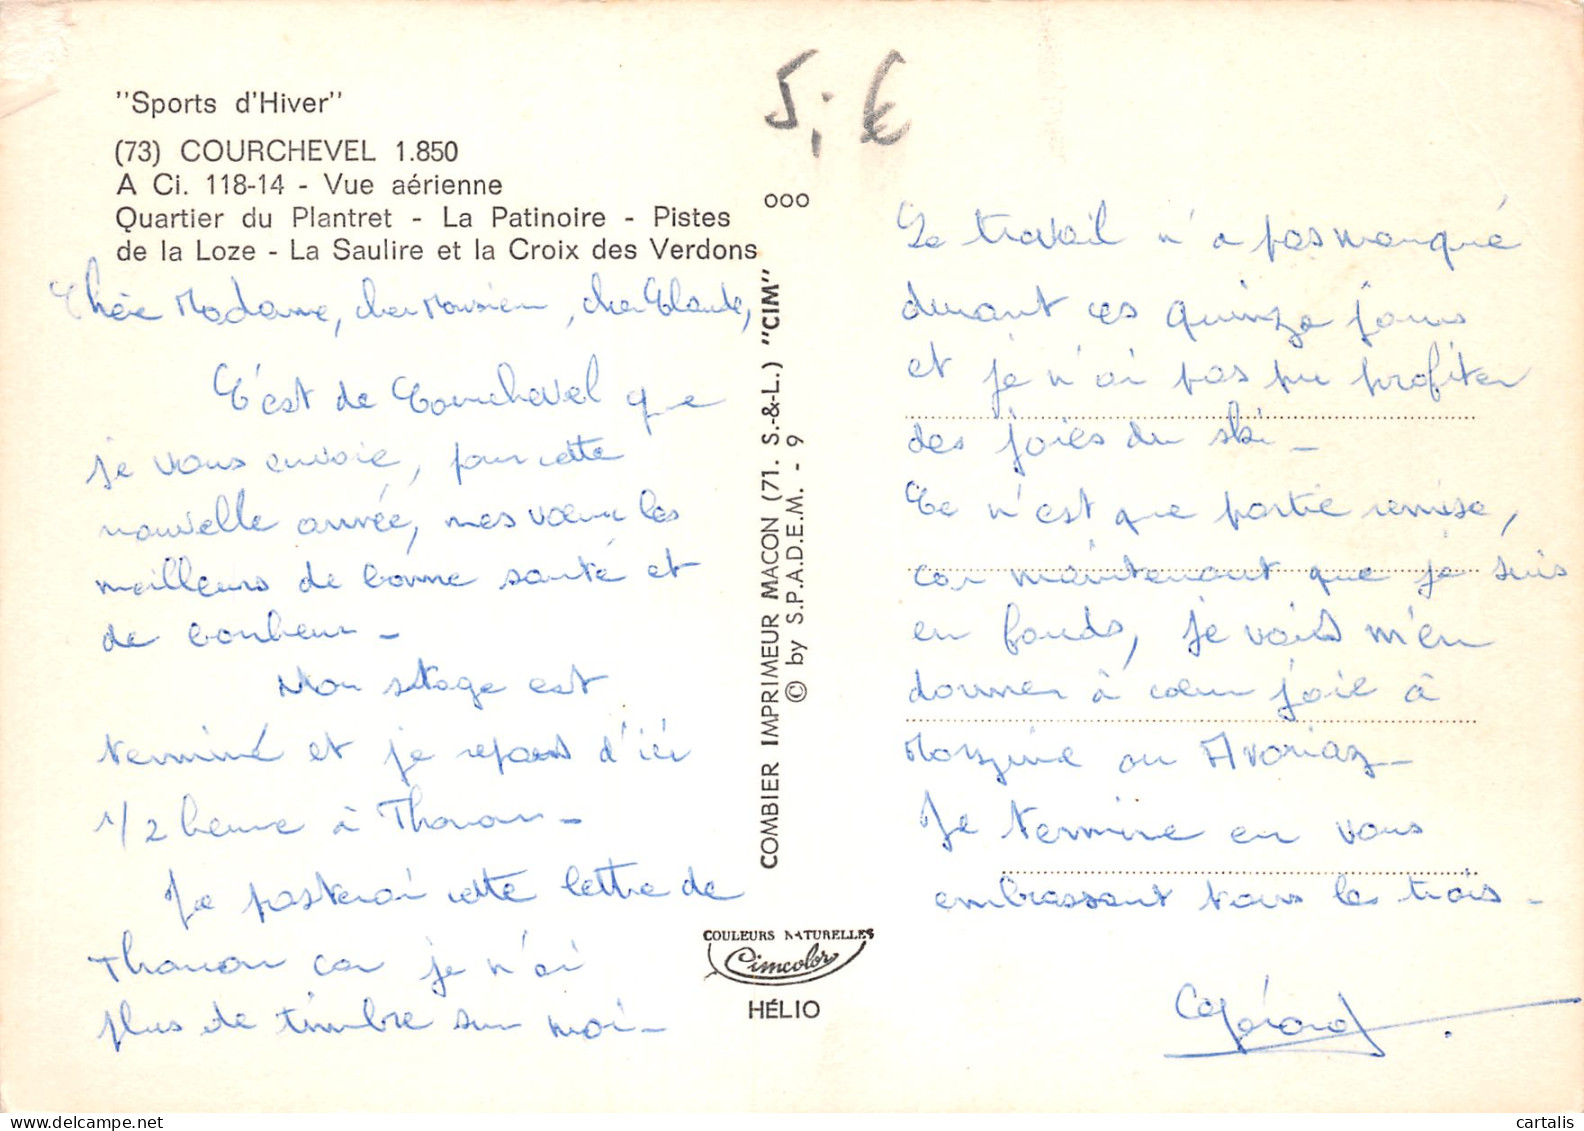 "Sports d'Hiver"
(73) COURCHEVEL 1.850
A Ci. 118-14 - Vue aérienne
Quartier du Plantret - La Patinoire - Pistes
de la Loze - La Saulire et la Croix des Verdons
Chère Madame, cher Monsieur, cher Claude,
C'est de Courchevel que
je vous envoie, pour cette
nouvelle année, mes vœux les
meilleurs de bonne santé et
de bonheur -
Mon stage est
terminé et je repars d'ici
1/2 heure à Thonon -
Je posterai cette lettre de
Thonon car je n'ai
plus de timbre sur moi -
COMBIER IMPRIMEUR MACON (71. S.-&-L.) "CIM"
© by S.P.A.D.E.M. - 9
COULEURS NATURELLES
Cimcolor
HÉLIO
5,€
000
Le travail n'a pas manqué
durant ces quinze jours
et je n'ai pas pu profiter
des joies du ski -
Ce n'est que partie remise,
car maintenant que je suis
en fonds, je vais m'en
donner à cœur joie à
Morzine ou Avoriaz -
Je termine en vous
embrassant tous les trois -
Gérard
cartalis